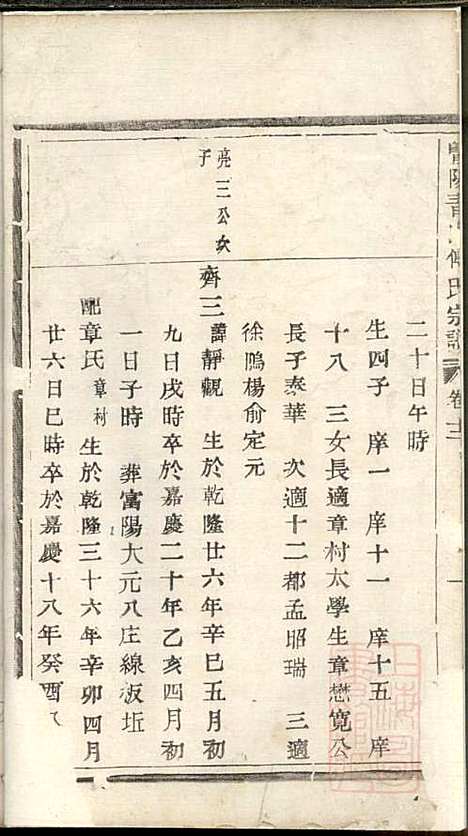 暨陽青 傅氏宗譜 卷十二 一
二十日午時
生四子 庠一 庠十一 庠十五 庠
十八 三女長適章村太學生章懋寬公
長子泰華 次適十二都孟昭瑞 三適
徐鴫楊俞定元
亮三公次子
齊三諱靜觀 生於乾隆廿六年辛巳五月初
九日戌時卒於嘉慶二十年乙亥四月初
一日子時 葬富陽大元八庄線板坵
配章氏章村 生於乾隆三十六年辛卯四月
廿六日巳時卒於嘉慶十八年癸酉八